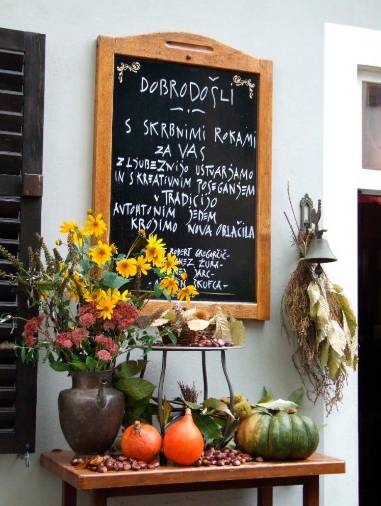 DOBRODOŠLI
S SKRBNIMI ROKAMI
ZA VAS
Z LJUBEZNIJO USTVARJAMO
IN S KREATIVNIM POSEGANJEM
V TRADICIJO
AVTOHTONIM JEDEM
KROJIMO NOVA OBLAČILA
ROBERT GREGORČIČ